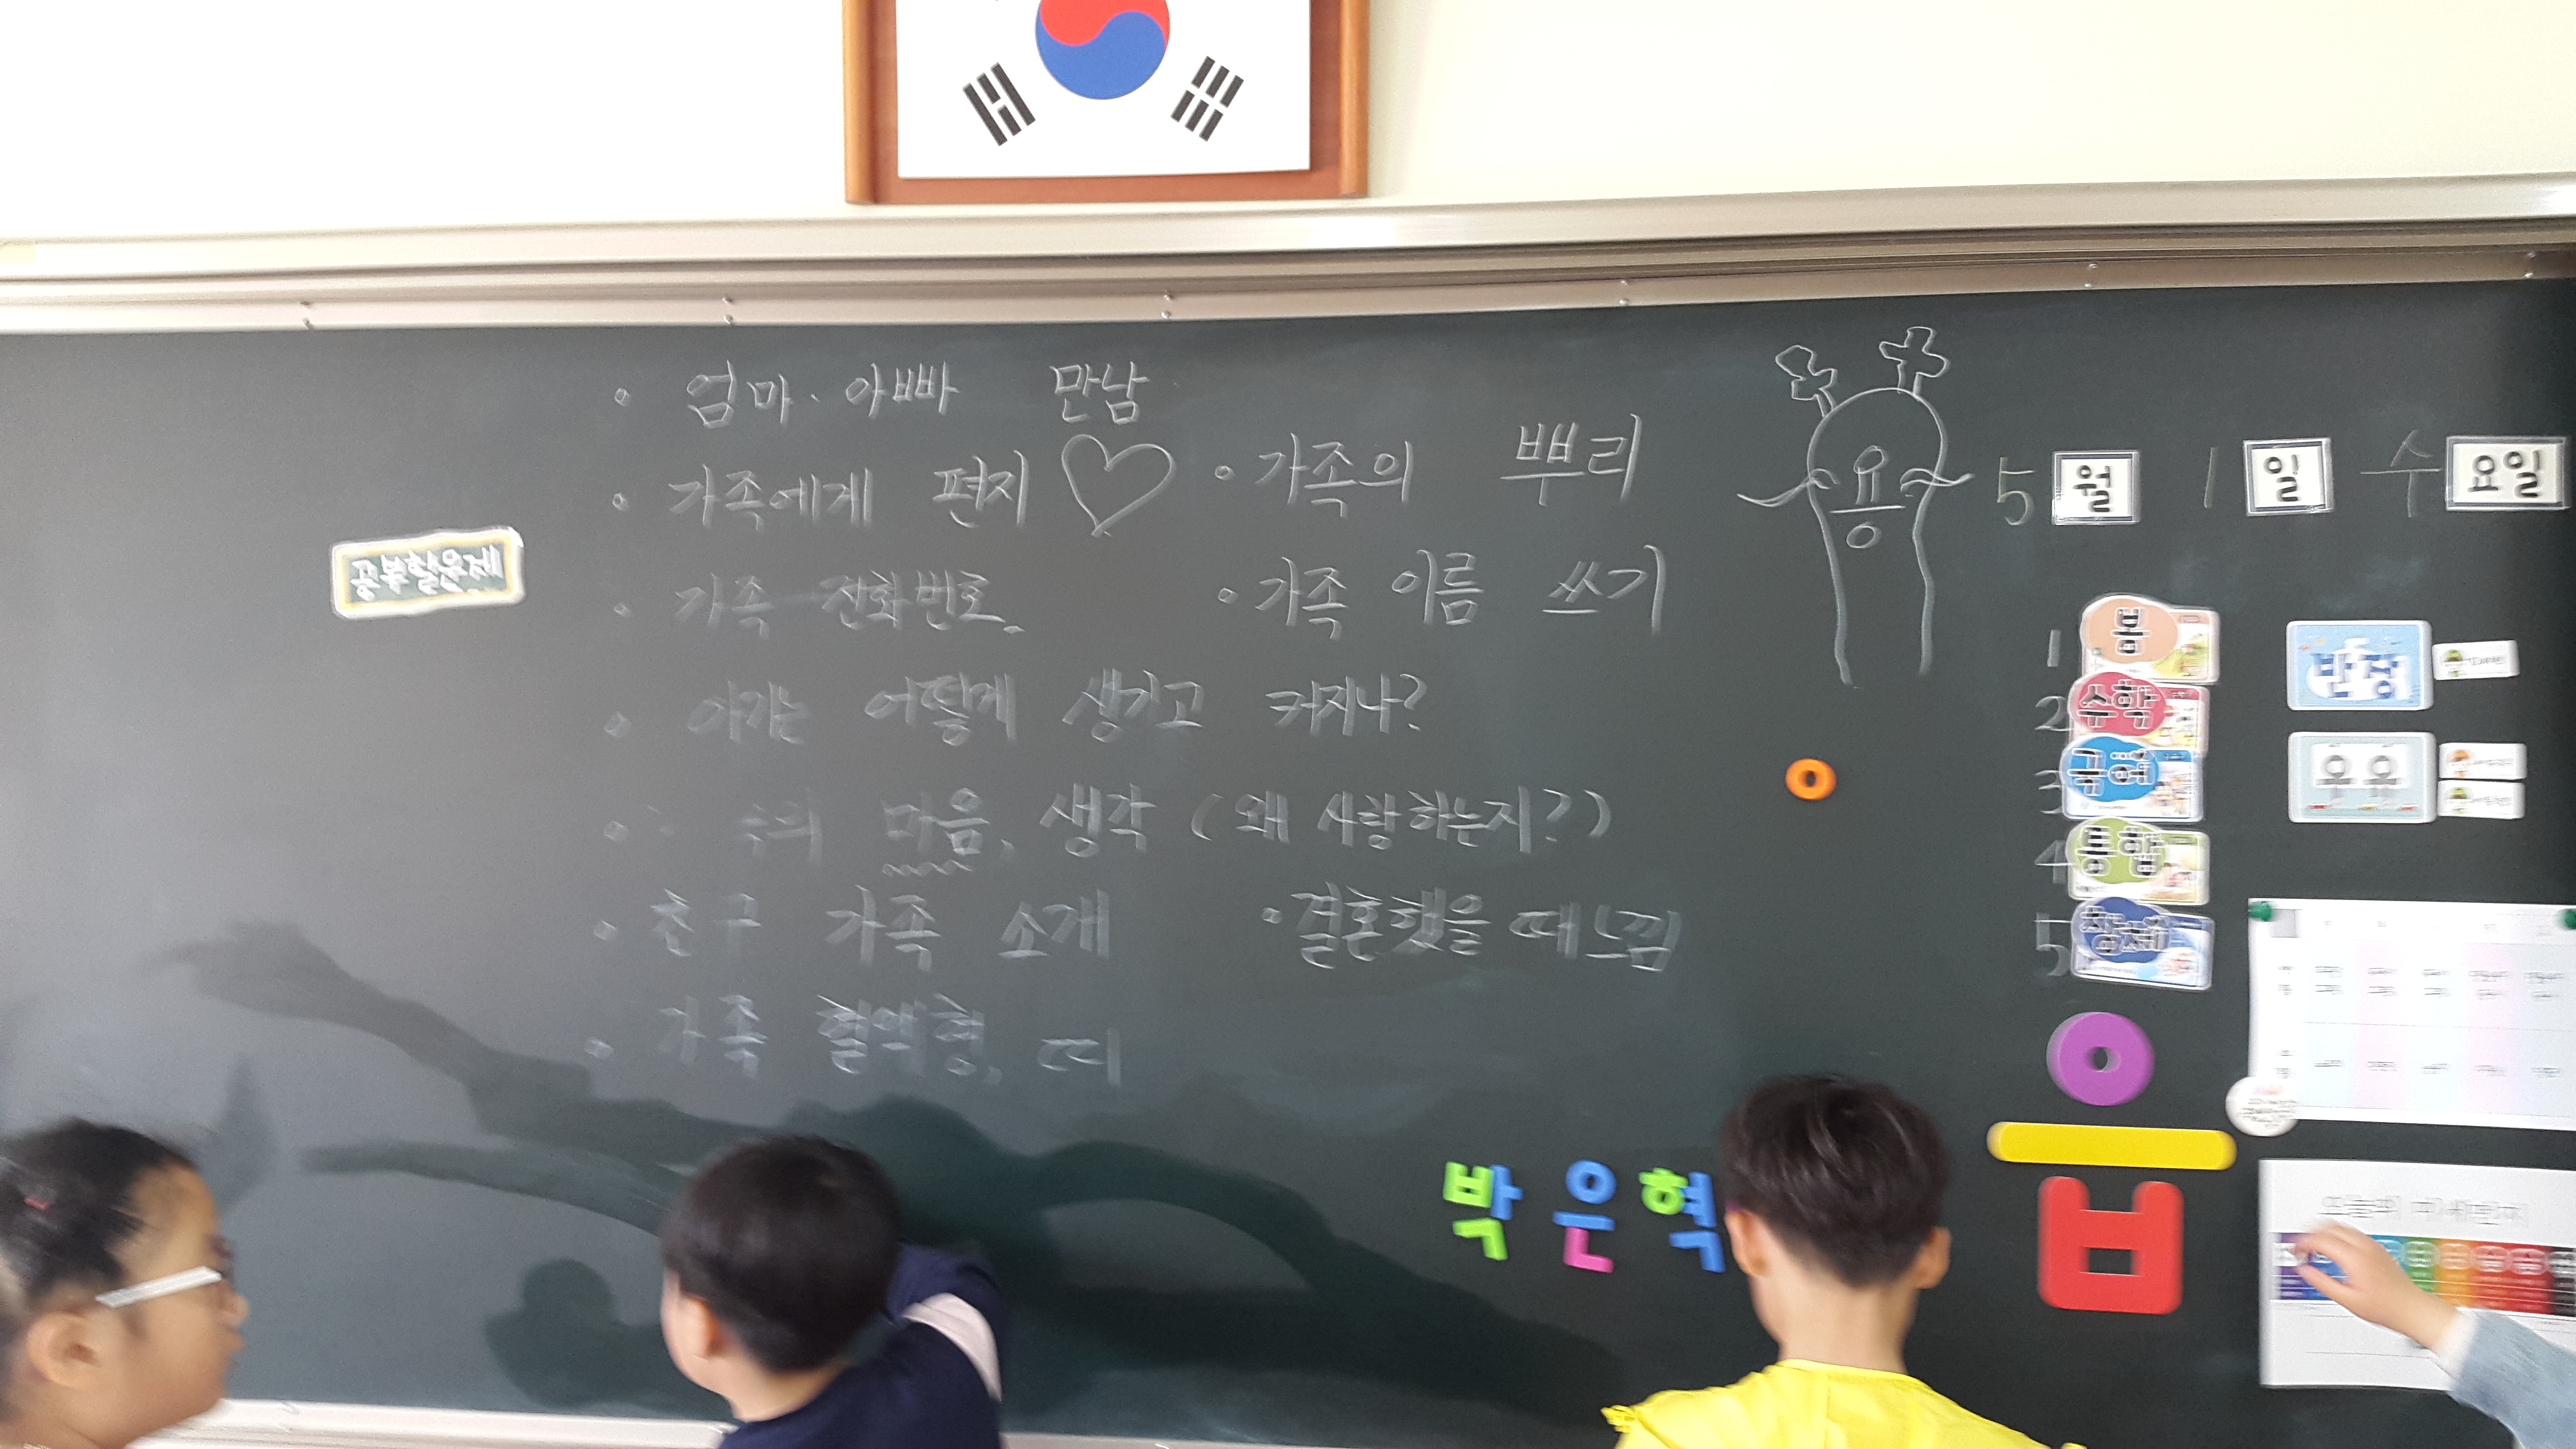 엄마·아빠 만남
가족에게 편지
가족의 뿌리
가족 전화번호
가족 이름 쓰기
아기는 어떻게 생기고 커지나?
마음, 생각 (왜 사랑하는지?)
친구 가족 소개
결혼했을 때 느낌
가족 혈액형, 띠
공부할문제
용
5월 1일 수요일
1 봄
2 수학
3 국어
4 통합
5 창체
반장
우유
박은혁
오늘의 미세먼지